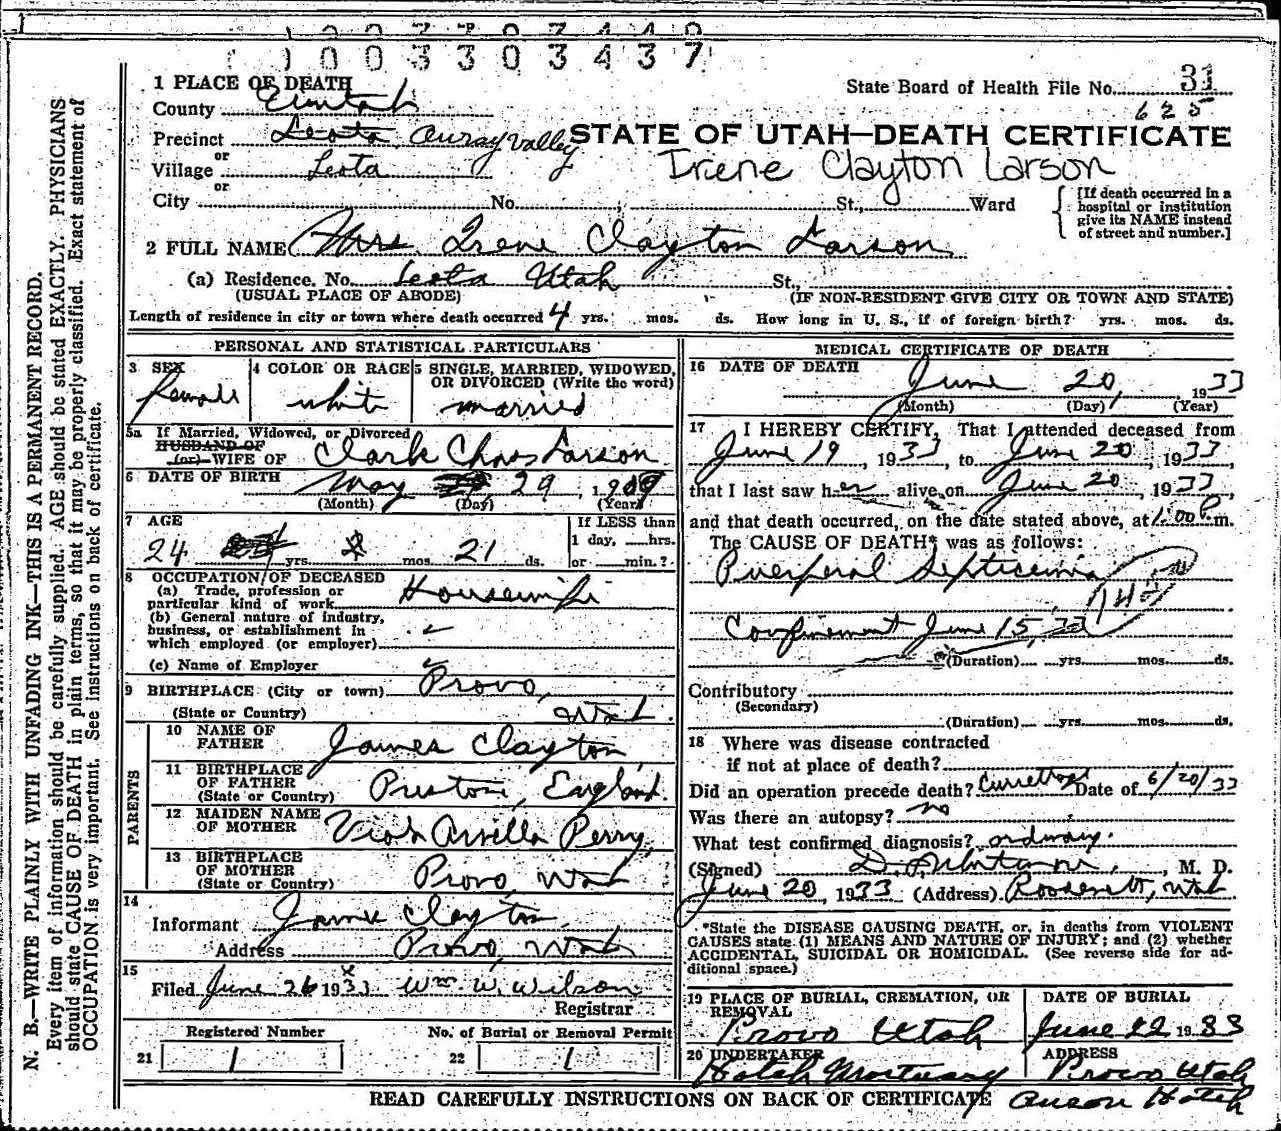 1 0 0 3 3 0 3 4 3 7
1 PLACE OF DEATH
State Board of Health File No. 31
625
County Uintah
STATE OF UTAH—DEATH CERTIFICATE
Precinct Leota, Ouray Valley
or
Irene Clayton Larson
Village Leota
or
City No. St., Ward
[If death occurred in a
hospital or institution
give its NAME instead
of street and number.]
2 FULL NAME Mrs Irene Clayton Larson
(a) Residence. No. Leota Utah St.,
(USUAL PLACE OF ABODE) (IF NON-RESIDENT GIVE CITY OR TOWN AND STATE)
Length of residence in city or town where death occurred 4 yrs. mos. ds. How long in U. S., if of foreign birth? yrs. mos. ds.
PERSONAL AND STATISTICAL PARTICULARS
3 SEX
female
4 COLOR OR RACE
white
5 SINGLE, MARRIED, WIDOWED,
OR DIVORCED (Write the word)
married
5a If Married, Widowed, or Divorced
HUSBAND OF
(or) WIFE OF Clark Chas Larson
6 DATE OF BIRTH May 29, 1909
(Month) (Day) (Year)
7 AGE
If LESS than
1 day, hrs.
24 yrs. mos. 21 ds. or min.?
8 OCCUPATION OF DECEASED
(a) Trade, profession or
particular kind of work Housewife
(b) General nature of industry,
business, or establishment in
which employed (or employer)
(c) Name of Employer
9 BIRTHPLACE (City or town) Provo,
(State or Country) Utah
PARENTS
10 NAME OF
FATHER James Clayton
11 BIRTHPLACE
OF FATHER
(State or Country) Preston, England.
12 MAIDEN NAME
OF MOTHER Viola Arvilla Perry
13 BIRTHPLACE
OF MOTHER
(State or Country) Provo, Utah
14
Informant James Clayton
Address Provo, Utah
15
Filed June 26 1933 Wm W. Wilson
Registrar
Registered Number No. of Burial or Removal Permit
21 1 22 1
MEDICAL CERTIFICATE OF DEATH
16 DATE OF DEATH June 20, 1933
(Month) (Day) (Year)
17 I HEREBY CERTIFY, That I attended deceased from
June 19, 1933, to June 20, 1933,
that I last saw her alive on June 20, 1933,
and that death occurred, on the date stated above, at 1:00 P m.
The CAUSE OF DEATH* was as follows:
Puerperal Septicemia
Confinement June 15, 33
(Duration) yrs. mos. ds.
Contributory
(Secondary)
(Duration) yrs. mos. ds.
18 Where was disease contracted
if not at place of death?
Did an operation precede death? Currettage Date of 6/20/33
Was there an autopsy? no
What test confirmed diagnosis? ordinary.
(Signed) M. D.
June 20, 1933 (Address) Roosevelt, Utah
*State the DISEASE CAUSING DEATH, or, in deaths from VIOLENT
CAUSES state (1) MEANS AND NATURE OF INJURY; and (2) whether
ACCIDENTAL, SUICIDAL OR HOMICIDAL. (See reverse side for ad-
ditional space.)
19 PLACE OF BURIAL, CREMATION, OR
REMOVAL
Provo Utah
DATE OF BURIAL
June 22 1933
20 UNDERTAKER
Hatch Mortuary
ADDRESS
Provo Utah
READ CAREFULLY INSTRUCTIONS ON BACK OF CERTIFICATE Anson Hatch
N. B.—WRITE PLAINLY WITH UNFADING INK—THIS IS A PERMANENT RECORD.
Every item of information should be carefully supplied. AGE should be stated EXACTLY. PHYSICIANS
should state CAUSE OF DEATH in plain terms, so that it may be properly classified. Exact statement of
OCCUPATION is very important. See instructions on back of certificate.